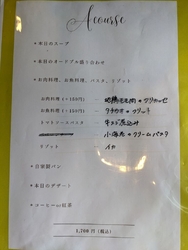 A course
* 本日のスープ
* 本日のオードブル盛り合わせ
* お肉料理、お魚料理、パスタ、リゾット
お肉料理 (+150円) — 地鶏もも肉の
お魚料理 (+150円) —
トマトソースパスタ — 煮込み
小海老のクリームパスタ
リゾット — イカ
* 自家製パン
* 本日のデザート
* コーヒーor紅茶
1,760円 (税込)